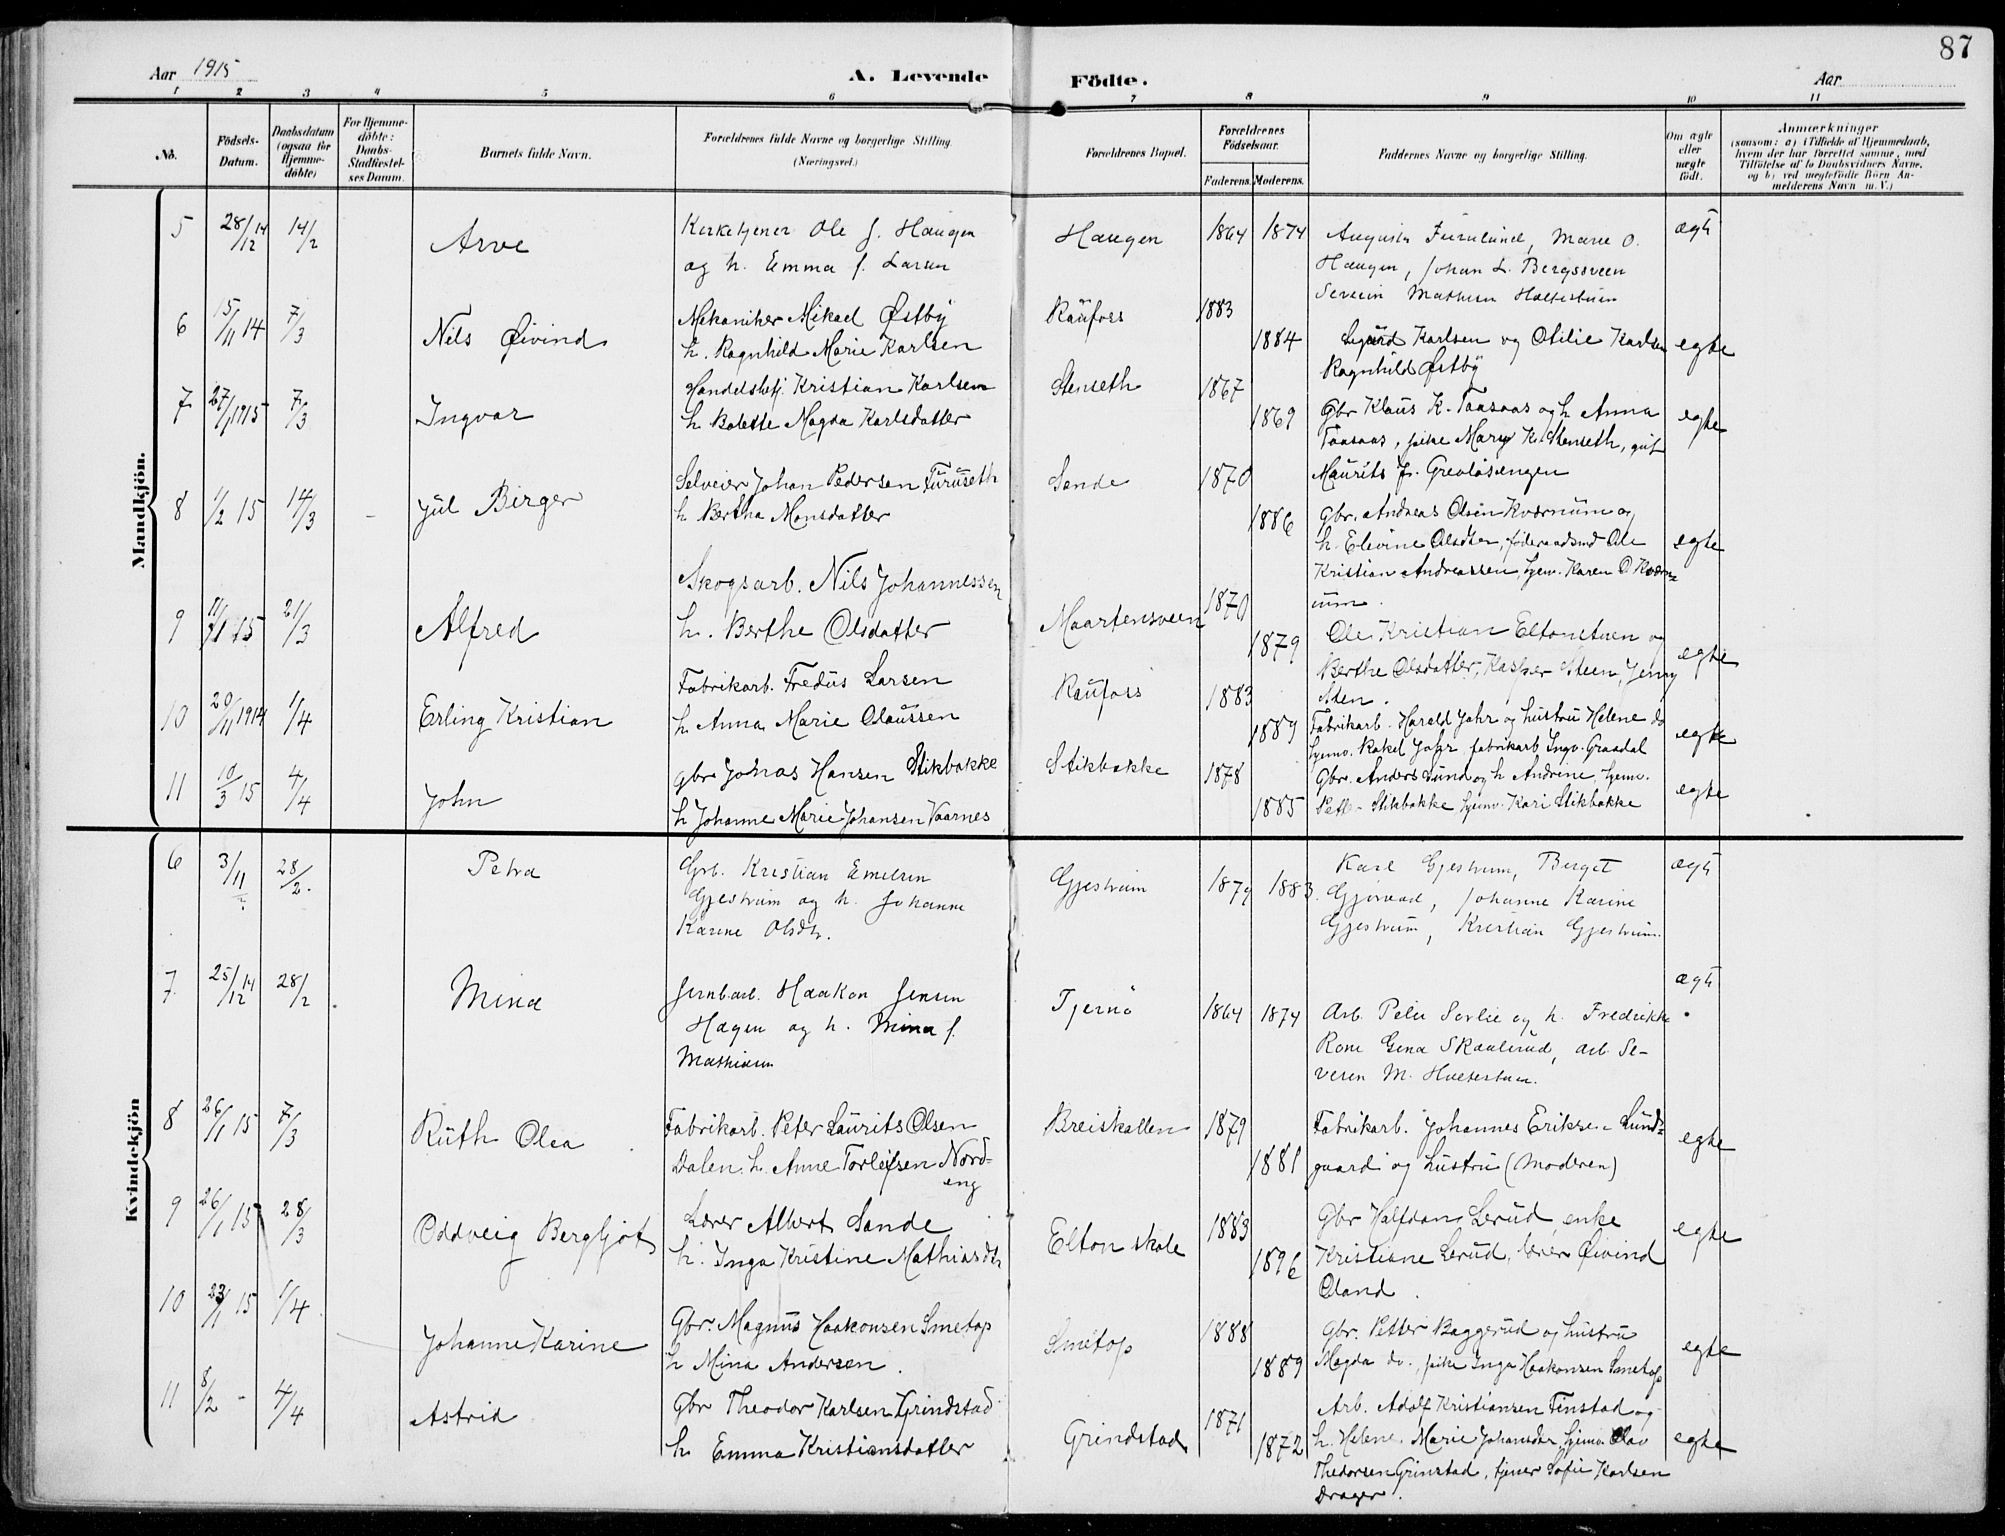 87
Aar 1915
A. Levende Födte.
Aar
1 2 3 4 5 6 7 8 9 10 11
No.
Födsels-
Datum.
Daabsdatum
(ogsaa for
Hjemme-
döbte)
For Hjemme-
döbte:
Daabs-
Stadfæstel-
ses Datum.
Barnets fulde Navn.
Forældrenes fulde Navne og borgerlige Stilling.
(Næringsvei.)
Forældrenes Bopæl.
Forældrenes
Födselsaar.
Faderens. Moderens.
Faddernes Navne og borgerlige Stilling.
Om ægte
eller
uægte
födt.
Anmærkninger
(saasom: a) i Tilfælde af Hjemmedaab,
hvem der har forrettet samme, med
Tilföielse af to Daabsvidners Navne,
og b) ved uegtefödte Börn An-
melderens Navn m. V.)
Mandkjön.
5 28/12 14 14/2 Arve
Kirketjener Ole J. Haugen
og h. Emma f. Larsen
Haugen 1864 1874
Furulund, Marie O.
Haugen, Johan L. Bergssveen
Severin
ægte
6 15/11 14 7/3 Nils Øivind
Mekaniker Mikael Østby
h. Ragnhild Marie Karlsen
Raufoss 1883 1884
Sigurd Karlsen og Otilie Karlsen
Ragnhild Østby
egte
7 27/1 1915 7/3 Ingvar
Handelsbetj. Kristian Karlsen
h. Bolette Magda Karlsdatter
Stenseth 1867 1869
Gbr Klaus K. Taasaas og h. Anna
Taasaas, pike Mary K. Stenseth, gut
Maurits Fr. Grevlösengen
egte
8 1/2 15 14/3 - Jul Birger
Selveier Johan Pedersen Furuseth
h Bertha Monsdatter
Sande 1870 1886
Gbr. Andreas Olsen Kværnum og
h. Elevine Olsdtr, föderaadsmd Ole
Kristian Andreassen, hjemv. Karen O Kværn-
um.
egte
9 11/1 15 21/3 Alfred
Skogsarb. Nils Johannessen
h. Berthe Olsdatter
Maartensveen 1870 1879
Ole Kristian Eltonstuen og
Berthe Olsdatter, Kasper Steen, Jenny
Sten.
egte
10 20/11 1914 1/4 Erling Kristian
Fabrikarb. Fredus Larsen
h. Anna Marie Olaussen
Raufoss 1883 1889
Fabrikarb. Harald Jahr og hustru Helene do
hjemv. Rakel Jahr, fabrikarb Ingv. Graadal
egte
11 10/3 15 4/4 John
gbr Johas Hansen Stikbakke
h Johanne Marie Johansen Vaarnes
Stikbakke 1878 1885
Gbr. Anders Lund og h Andrine, hjemv.
Stikbakke hjemv. Kari Stikbakke
egte
Kvindekjön
6 3/11 28/2. Petra
Grb. Kristian Emilsen
Gjestrum og h. Johanne
Karine Olsdtr.
Gjestrum 1879 1883.
Karl Gjestrum, Berget
Johanne Karine
Gjestrum, Kristian Gjestrum.
ægte
7 25/12 14 28/2. Mina
Jernbarb. Haakon Jensen
Hagen og h. Mina f.
Mathiesen
Tjernö 1864 1874
Arb. Peter Sørlie og h. Fredrikke
Rone Gina Skaalerud, arb. Se-
veren M.
ægte
8 26/1 15 7/3 Ruth Olea
Fabrikarb. Peter Laurits Olsen
Dalen, h. Anne Torleifsen Nord-
eng
Breiskallen 1879 1881
Fabrikarb. Johannes Eriksen Lunds-
gaard og hustru (Moderen)
egte
9 26/1 15 28/3 Oddveig Bergljot
Lærer Albert Sande
h. Inga Kristine Mathiasdtr
Elton skole 1883 1896
Gbr Halfdan Lerud, enke
Kristiane Lerud, lærer Øivind
Oland.
egte
10 23/1 15 1/4 Johanne Karine
Gbr. Magnus Haakonsen Smetop
h Mina Andersen.
Smetop 1888 1889
Gbr. Petter Baggerud og hustru
Magda do., pike Inga Haakonsen Smetop
egte
11 8/2 - 4/4 Astrid
Gbr Theodor Karlsen Grindstad
h. Emma Kristiansdatter
Grindstad 1871 1872
Arb. Adolf Kristiansen Finstad og
h. Helene Marie Johansdtr hjemv. Olav
Thedorsen Grinstad, tjener Sofie Karlsen
Drager.
egte